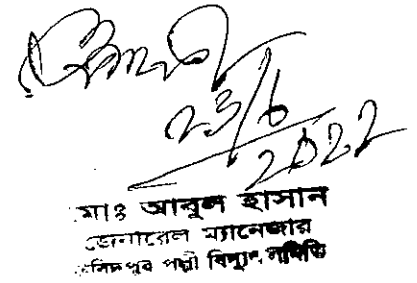 23/6
2022
মোঃ আবুল হাসান
জেনারেল ম্যানেজার
পল্লী বিদ্যুৎ সমিতি